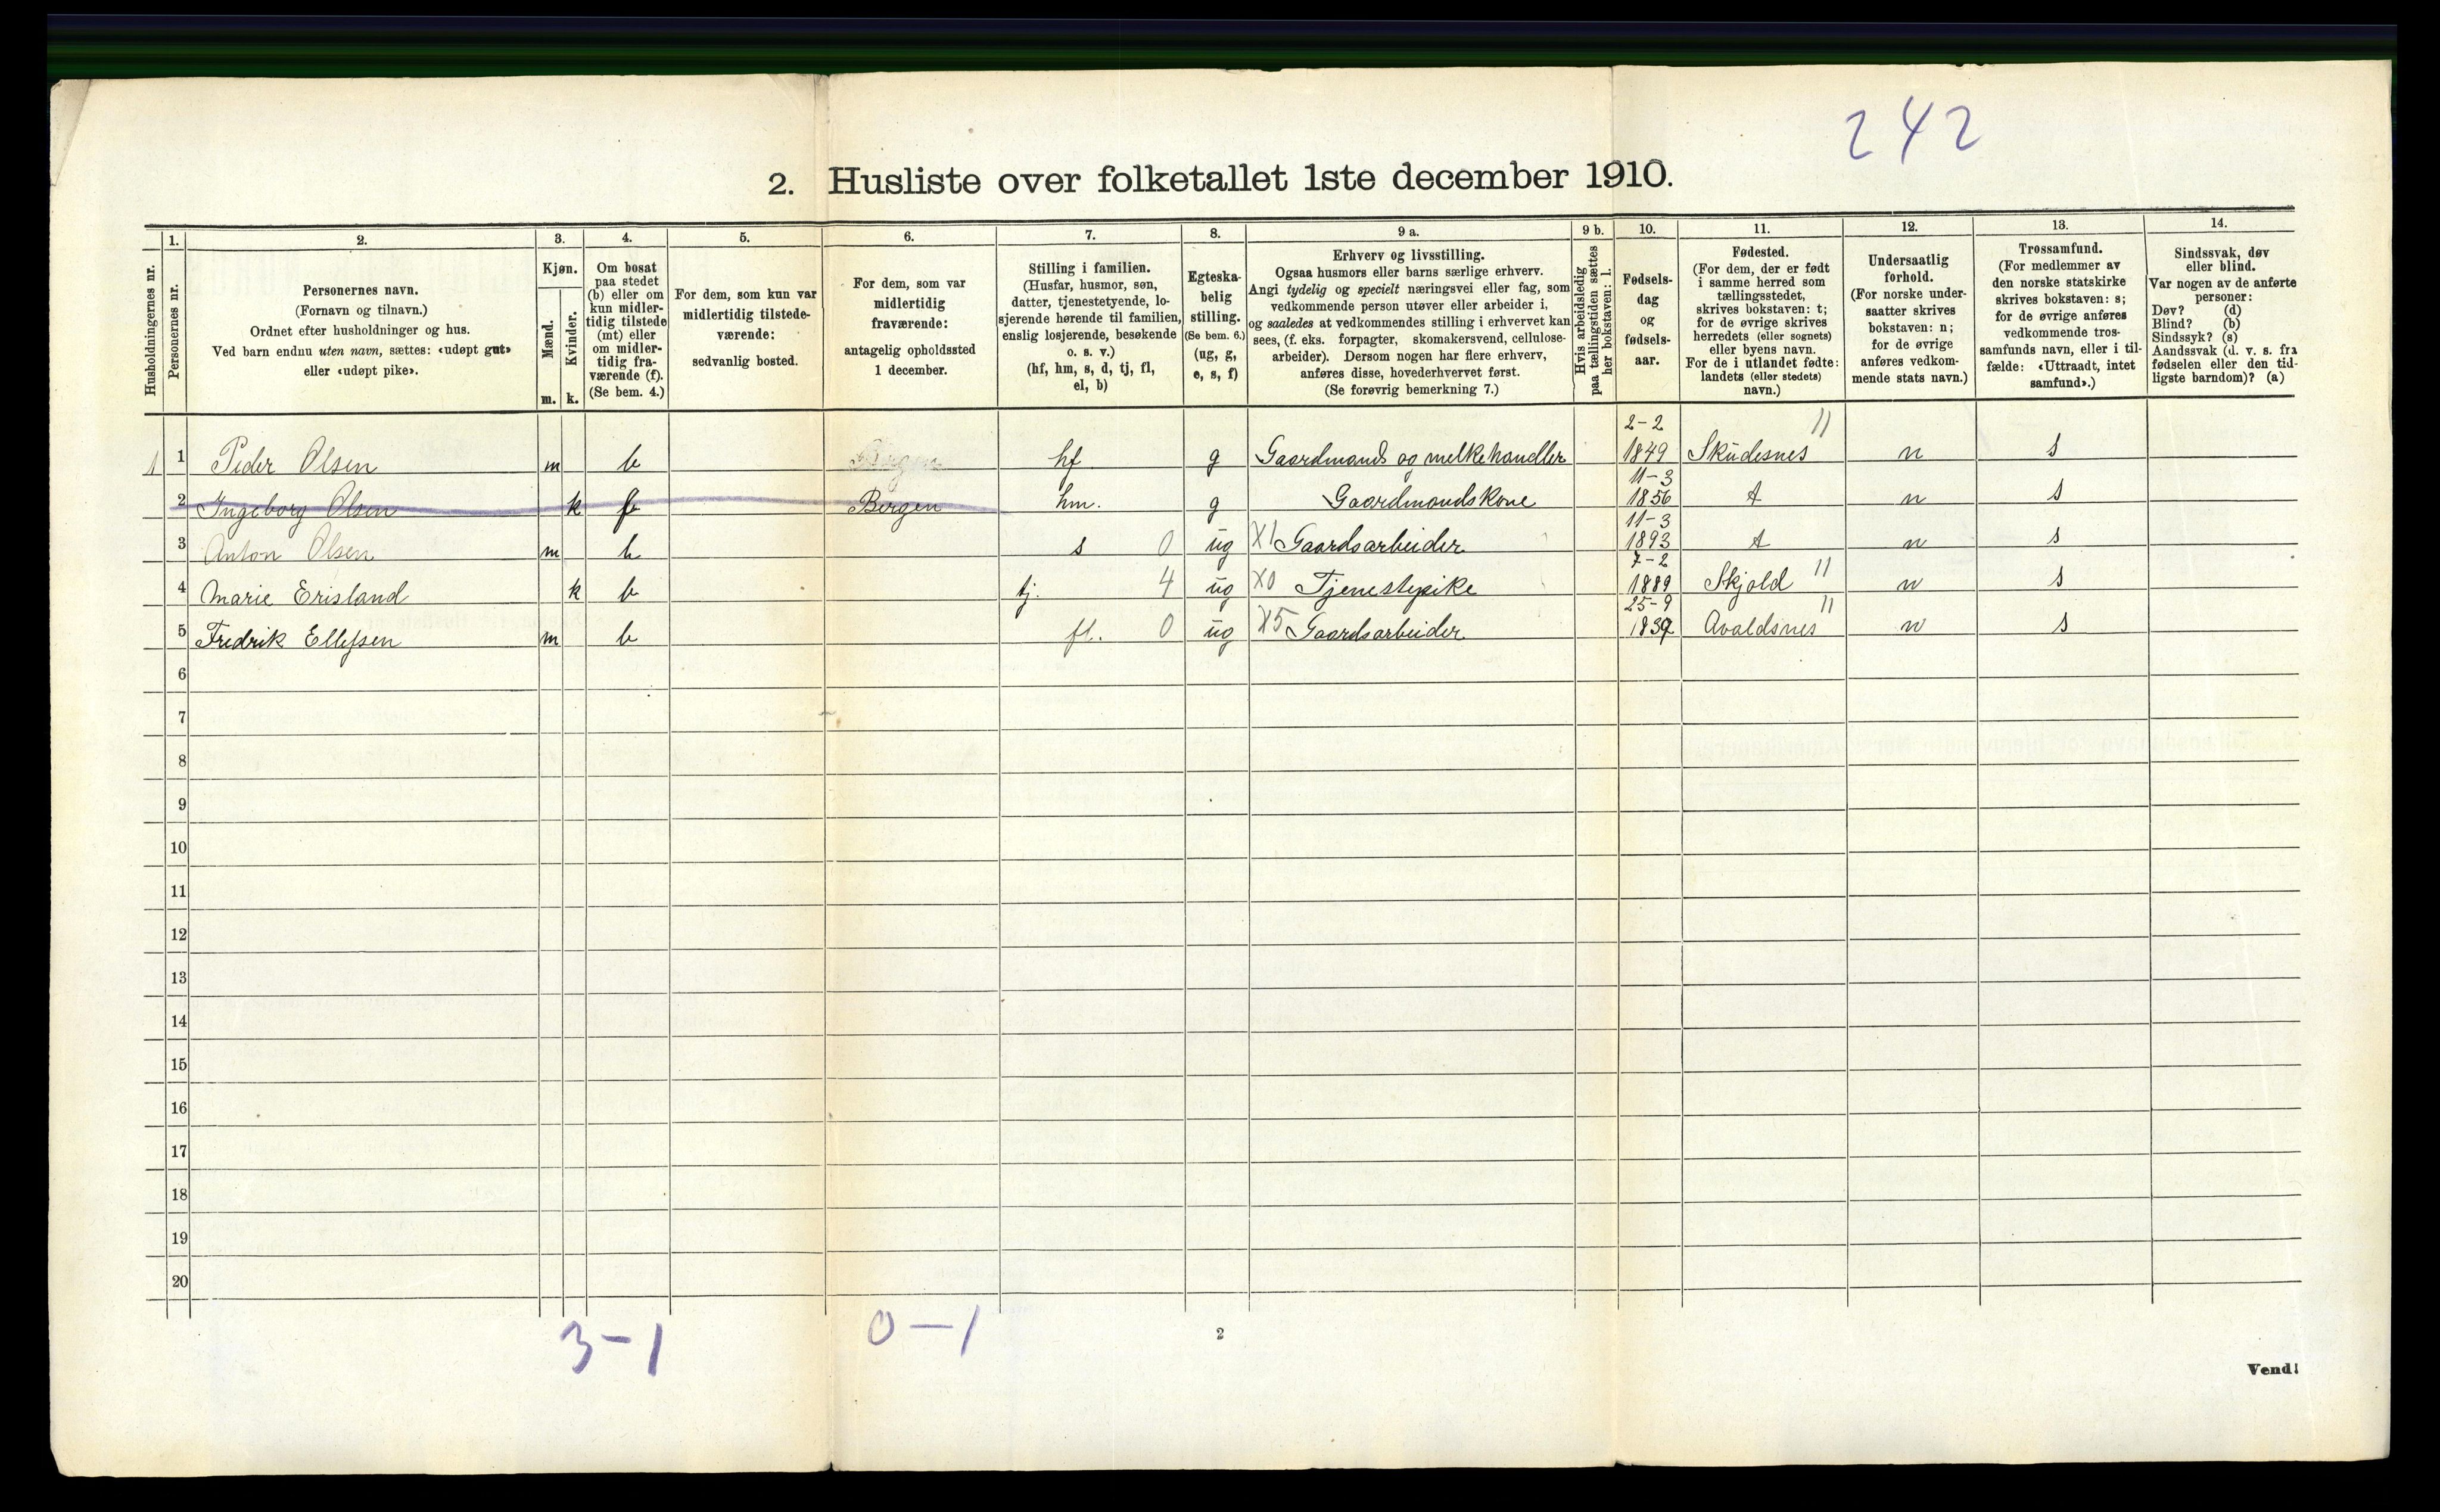 242
2. Husliste over folketallet 1ste december 1910.
Husholdningernes nr.
1.
Personernes nr.
2.
Personernes navn.
(Fornavn og tilnavn.)
Ordnet efter husholdninger og hus.
Ved barn endnu uten navn, sættes: «udøpt gut»
eller «udøpt pike».
3.
Kjøn.
Mænd.
m.
Kvinder.
k.
4.
Om bosat
paa stedet
(b) eller om
kun midler-
tidig tilstede
(mt) eller
om midler-
tidig fra-
værende (f).
(Se bem. 4.)
5.
For dem, som kun var
midlertidig tilstede-
værende:
sedvanlig bosted.
6.
For dem, som var
midlertidig
fraværende:
antagelig opholdssted
1 december.
7.
Stilling i familien.
(Husfar, husmor, søn,
datter, tjenestetyende, lo-
sjerende hørende til familien,
enslig losjerende, besøkende
o. s. v.)
(hf, hm, s, d, tj, fl,
el, b)
8.
Egteska-
belig
stilling.
(Se bem. 6.)
(ug, g,
e, s, f)
9 a.
Erhverv og livsstilling.
Ogsaa husmors eller barns særlige erhverv.
Angi tydelig og specielt næringsvei eller fag, som
vedkommende person utøver eller arbeider i,
og saaledes at vedkommendes stilling i erhvervet kan
sees, (f. eks. forpagter, skomakersvend, cellulose-
arbeider). Dersom nogen har flere erhverv,
anføres disse, hovederhvervet først.
(Se forøvrig bemerkning 7.)
9 b.
Hvis arbeidsledig
paa tællingstiden sættes
her bokstaven: l.
10.
Fødsels-
dag
og
fødsels-
aar.
11.
Fødested.
(For dem, der er født
i samme herred som
tællingsstedet,
skrives bokstaven: t;
for de øvrige skrives
herredets (eller sognets)
eller byens navn.
For de i utlandet fødte:
landets (eller stedets)
navn.)
12.
Undersaatlig
forhold.
(For norske under-
saatter skrives
bokstaven: n;
for de øvrige
anføres vedkom-
mende stats navn.)
13.
Trossamfund.
(For medlemmer av
den norske statskirke
skrives bokstaven: s;
for de øvrige anføres
vedkommende tros-
samfunds navn, eller i til-
fælde: «Uttraadt, intet
samfund».)
14.
Sindssvak, døv
eller blind.
Var nogen av de anførte
personer:
Døv? (d)
Blind? (b)
Sindssyk? (s)
Aandssvak (d. v. s. fra
fødselen eller den tid-
ligste barndom)? (a)
2-2 11
1 1 Peder Olsen m b Bergen hf g Gaardmand og melkehandler 1849 Skudesnes n s
11-3
2 Ingeborg Olsen k f Bergen hm. g Gaardmandskone 1856 t n s
11-3
3 Anton Olsen m b s 0 ug X1 Gaardsarbeider 1893 t n s
7-2
4 Marie Erisland k b tj. 4 ug X0 Tjenestepike 1889 Skjold 11 n s
25-9 11
5 Fredrik Ellefsen m b fl. 0 ug X5 Gaardsarbeider 1839 Avaldsnes n s
6
7
8
9
10
11
12
13
14
15
16
17
18
19
20
3-1 0-1
2
Vend!